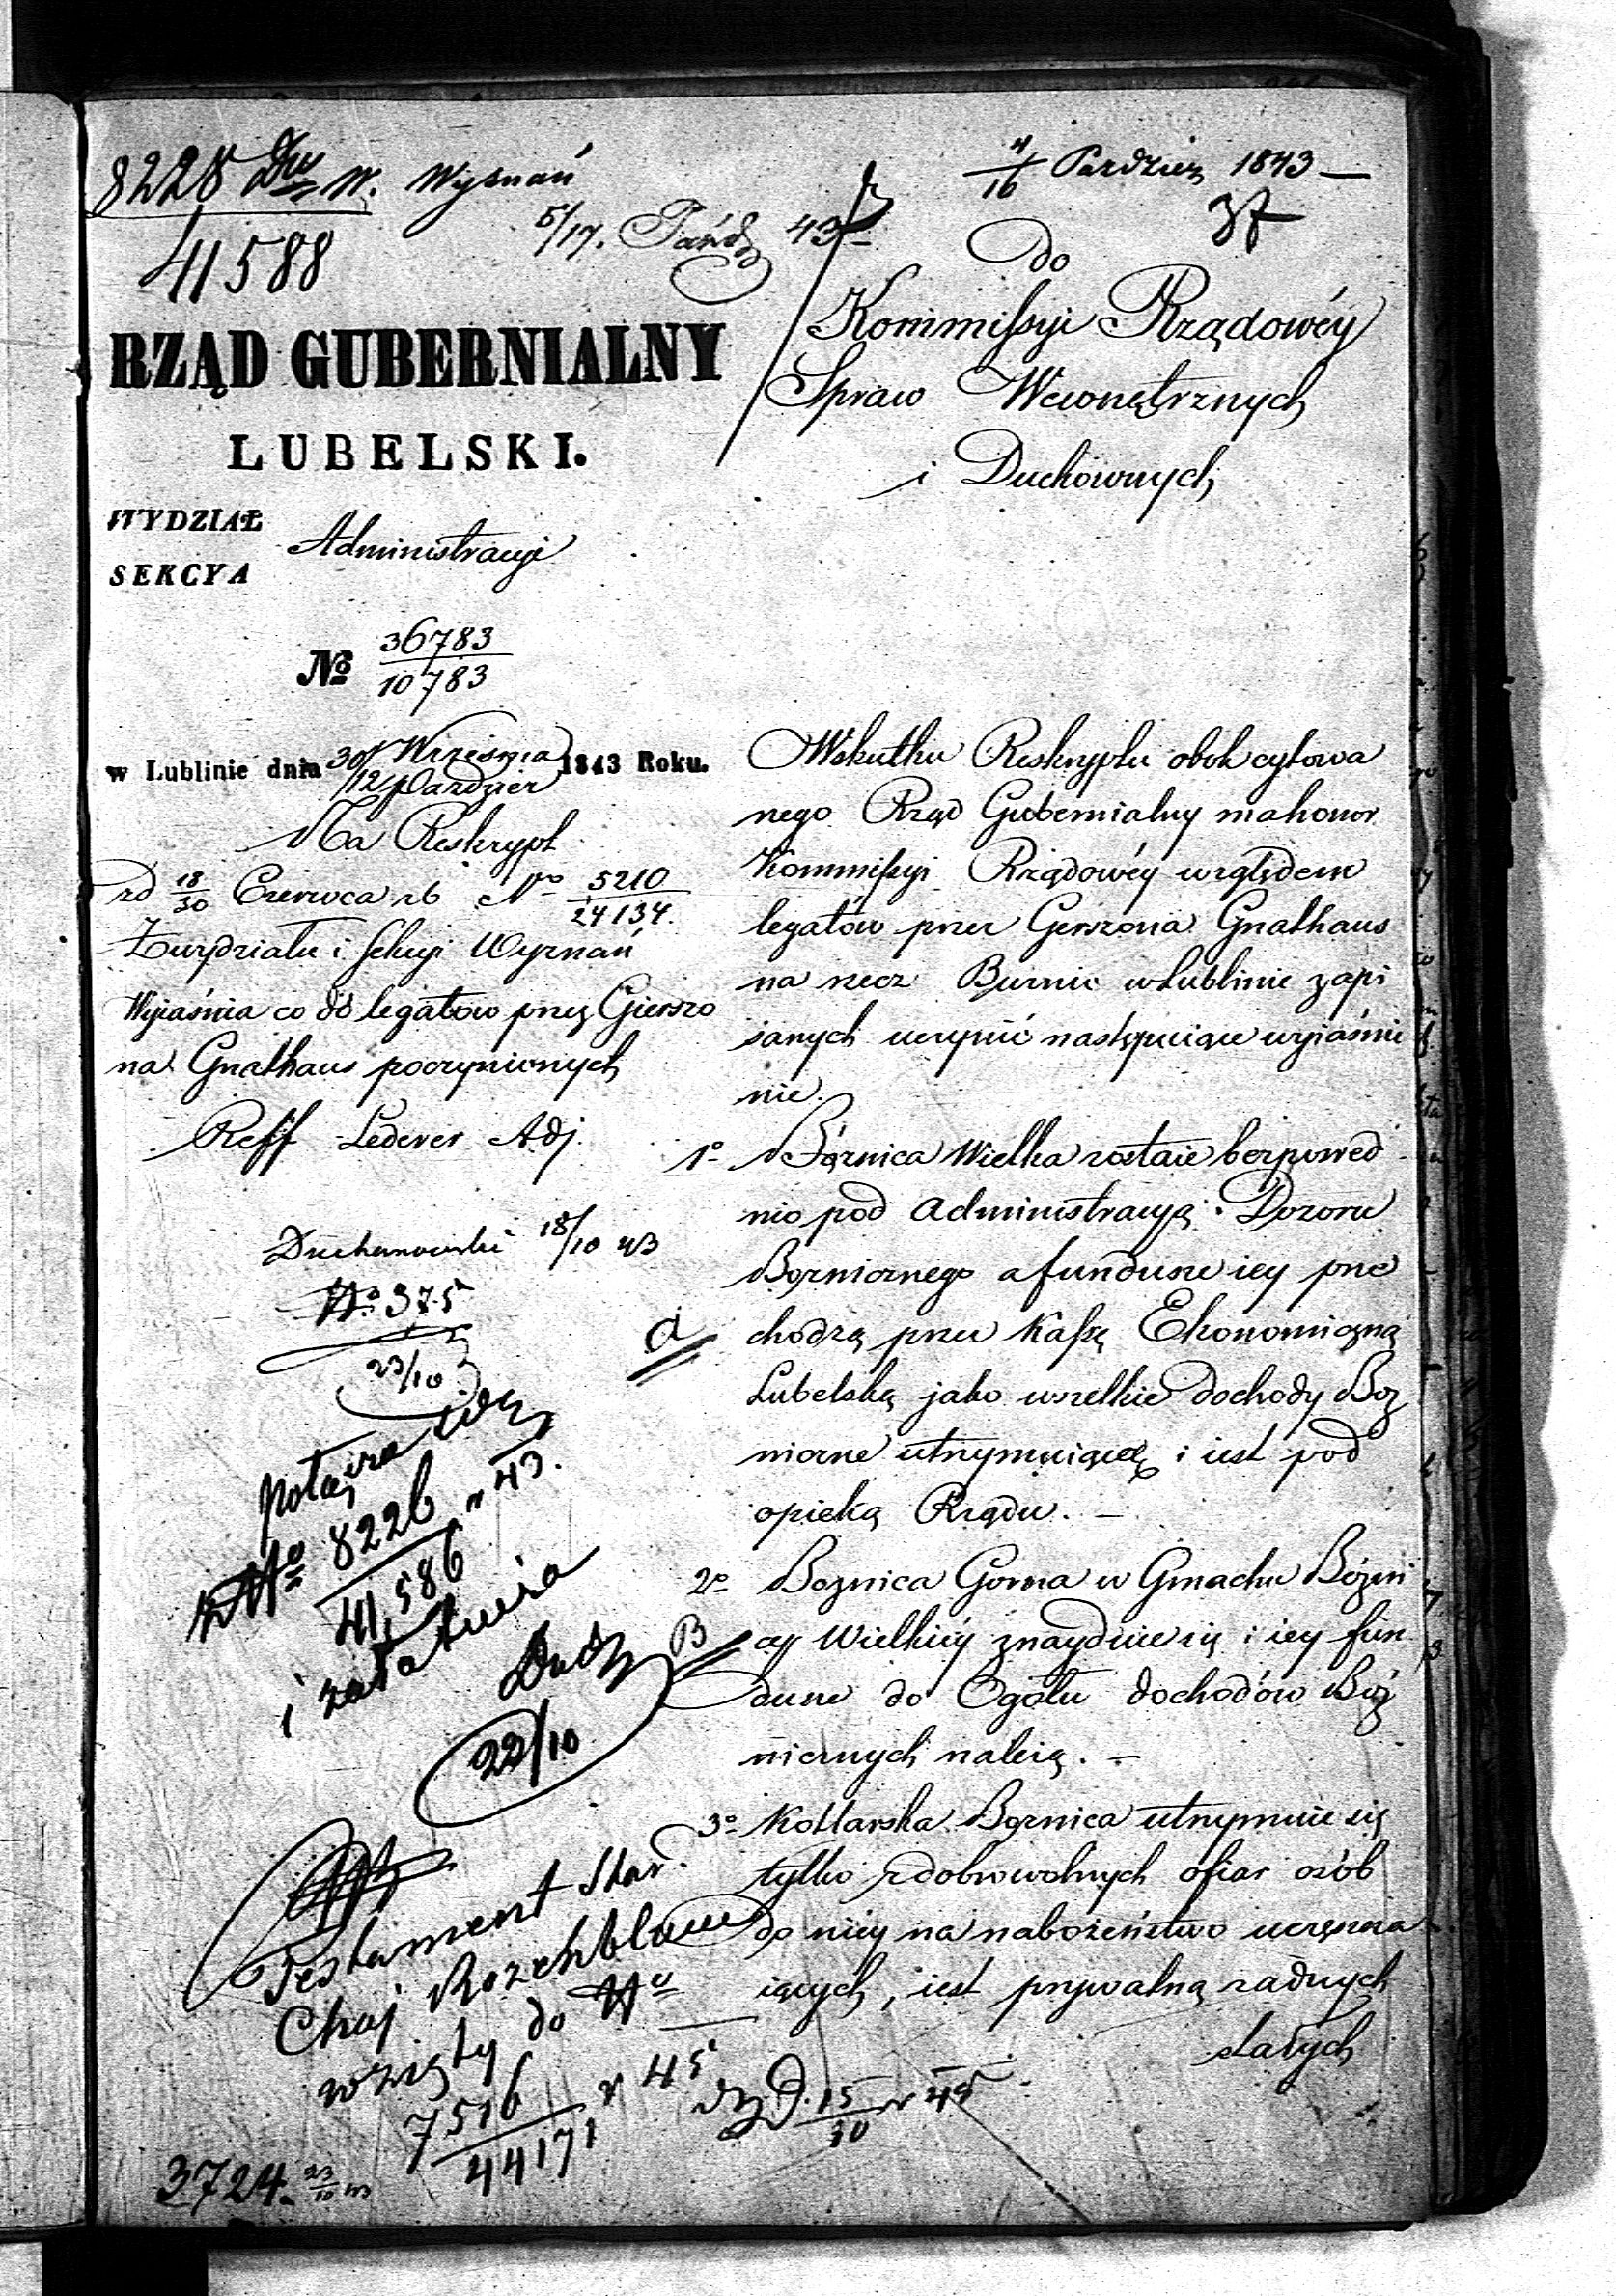 8228 W. Wyznań
41588
5/17. Paźdz 43
4/16 Pazdzier 1843 —
37
do
Kommissyi Rządowéy
Spraw Wewnętrznych
i Duchownych
RZĄD GUBERNIALNY
LUBELSKI.
WYDZIAŁ
Administracyi
SEKCYA
№ 36783/10783
w Lublinie dnia 30/12 Września/Pazdzier 1843 Roku.
Na Reskrypt
zd 18/30 Czerwca rb No 5210/24134.
Z wydziału i Sekcyi Wyznań
Wyiaśnia co do legatow przez Gierszo
na Gnathaus poczynionych
Reff Lederer Adj.
18/10 43
No 375
23/10
No 8226/41,586 r 43.
i załatwia
22/10
Testament Star.
Chaj Rozenblum
wzięty do No
7516/44171 r 45
15/30 r 45
3724. 23/10 43
Wskutku Reskryptu obok cytowa
nego Rząd Gubernialny ma honor
Kommissyi Rządowéy względem
legatów przez Gerszona Gnathaus
na rzecz Bużnic w Lublinie zapi
sanych uczynić następuiące wyiaśnie
nie.
1o Bóżnica Wielka zostaie bezpośred
nio pod Administracyą Dozoru
Bożnicznego a fundusze iey prze
a chodzą przez Kassę Ekonomiczną
Lubelską jako wszelkie dochody Boż
niczne utrzymuiącą i iest pod
opieką Rządu. —
2o Bożnica Gorna w Gmachu Bóżni
B cy Wielkiéy znayduie się i iey fun
dusze do Ogółu dochodów Bóż
nicznych należą. —
3o Kotlarska Bożnica utrzymuie się
tylko z dobrowolnych ofiar osób
do niéy na nabożeństwo uczęszcza
iących, iest prywatną żadnych
stałych